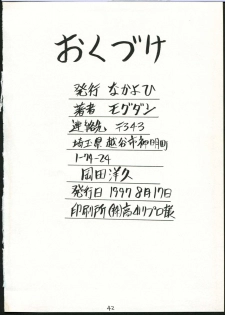 おくづけ
発行 なかよひ
著者 モグダン
連絡先 〒343
埼玉県越谷市御明町
1-79-24
岡田洋久
発行日 1997 8月17日
印刷所 (株)
42